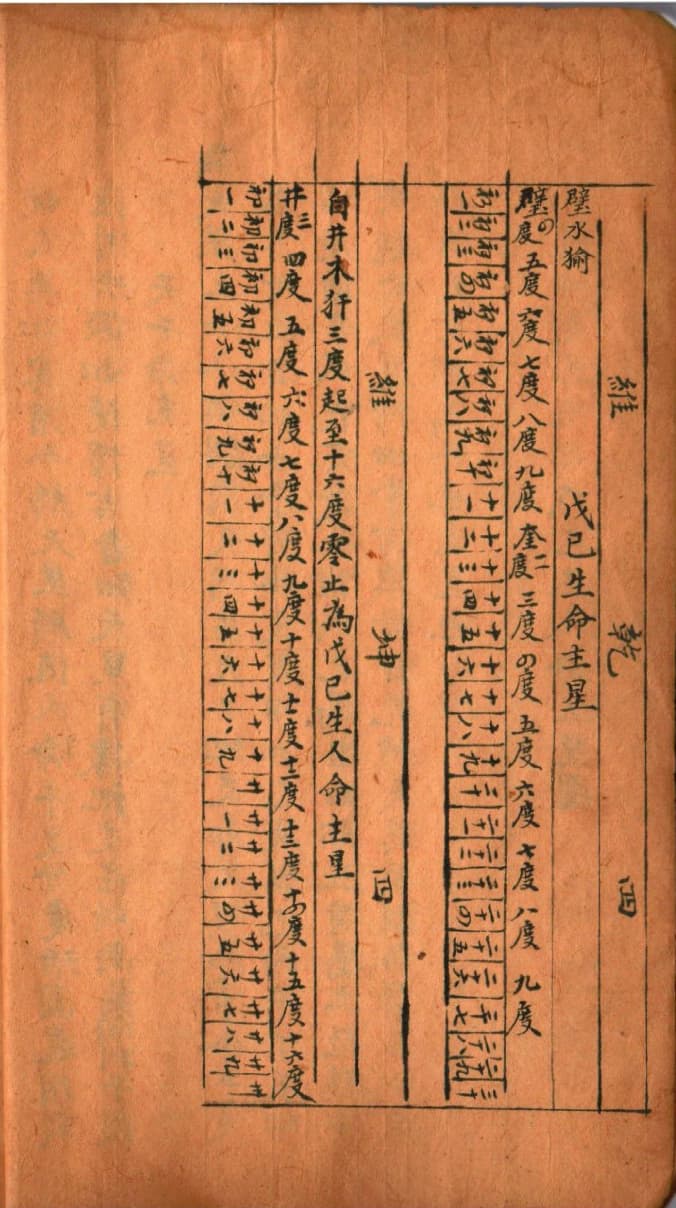 維 乾 四
壁水㺄 戊己生命主星
壁の度 五度 六度 七度 八度 九度 奎二度 三度 の度 五度 六度 七度 八度 九度
初一 初二 初三 初の 初五 初六 初七 初八 初九 初十 十一 十二 十三 十四 十五 十六 十七 十八 十九 二十 二十一 二十二 二十三 二十の 二十五 二十六 二十七 二十八 二十九 三十
維 坤 四
自井木犴三度起至十六度零止為戊己生人命主星
井三度 四度 五度 六度 七度 八度 九度 十度 十一度 十二度 十三度 十の度 十五度 十六度
初一 初二 初三 初四 初五 初六 初七 初八 初九 初十 十一 十二 十三 十四 十五 十六 十七 十八 十九 廿 廿一 廿二 廿三 廿の 廿五 廿六 廿七 廿八 廿九 卅